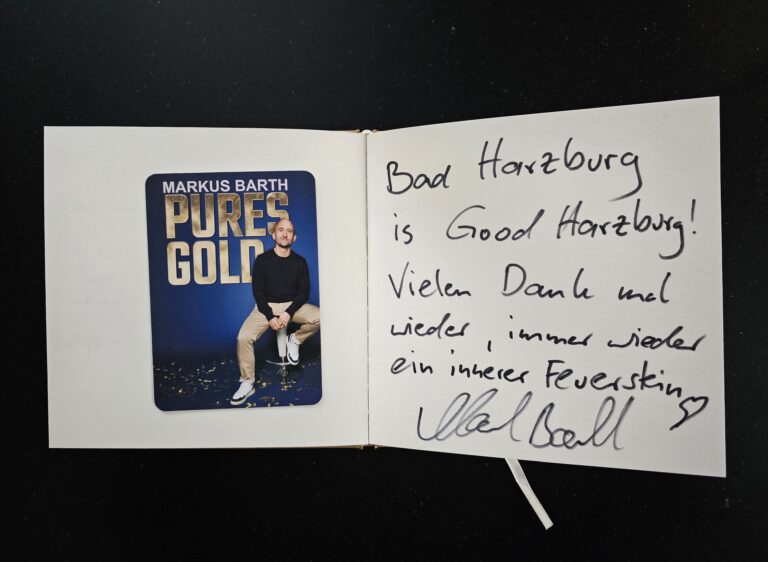 MARKUS BARTH
PURES
GOLD
Bad Harzburg
is Good Harzburg!
Vielen Dank mal
wieder, immer wieder
ein innerer Feuerstein